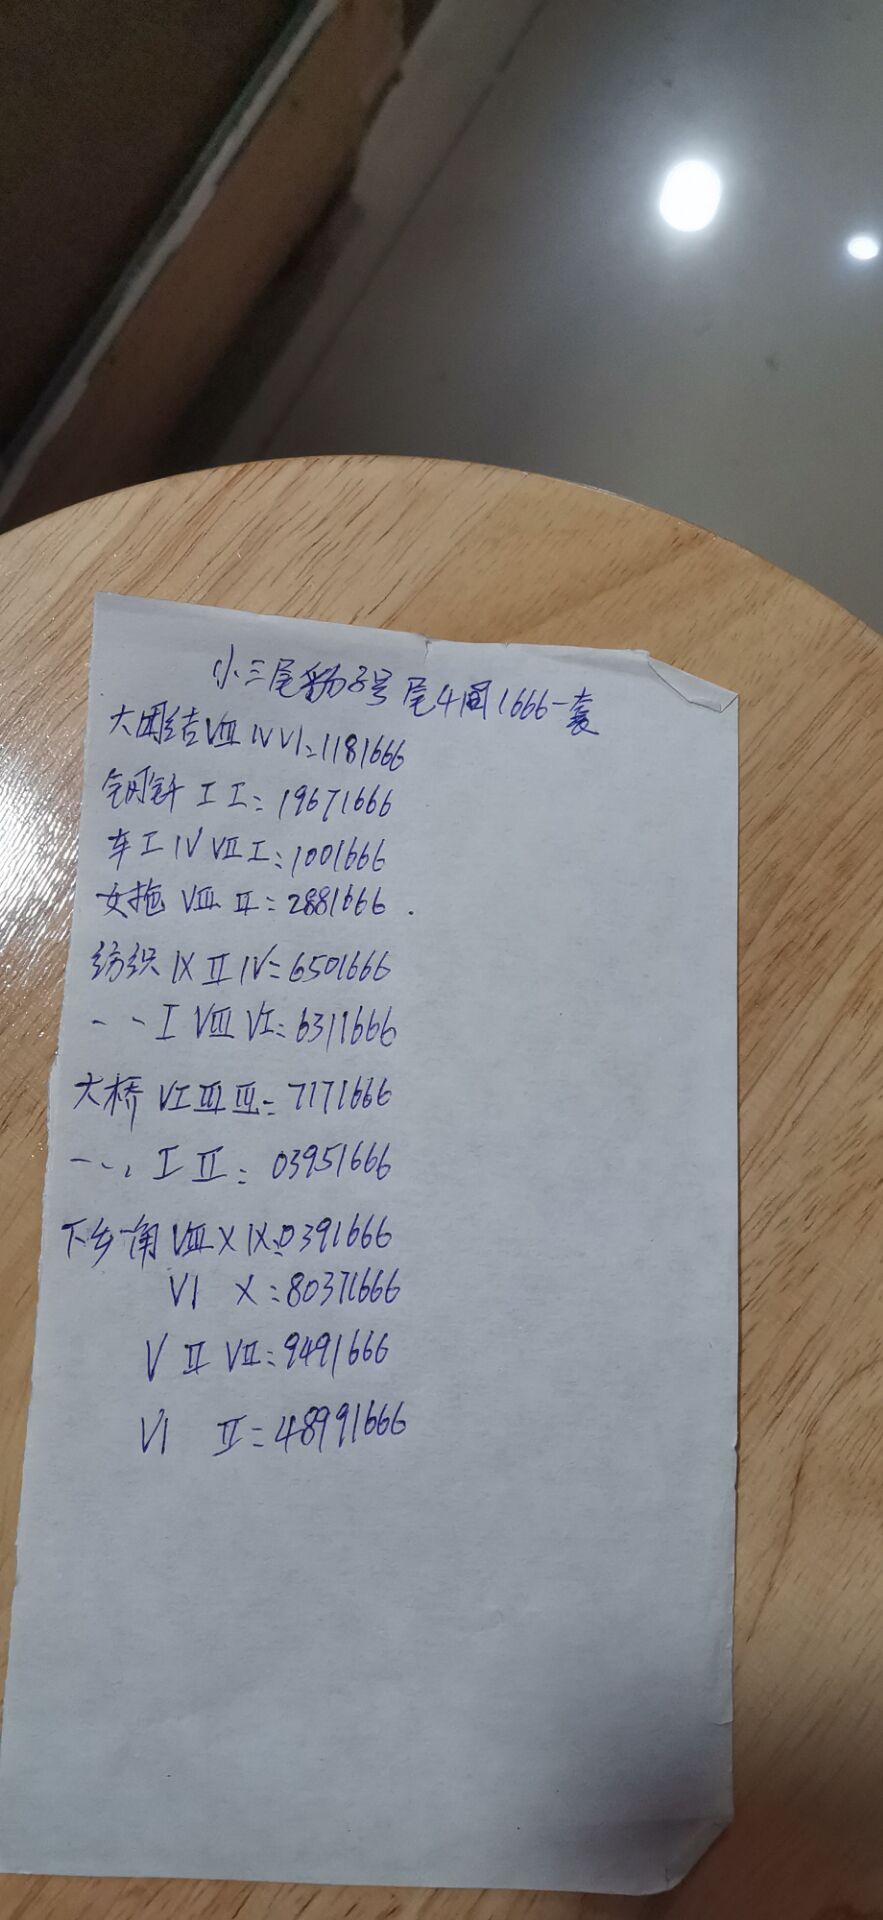 小三尾豹子号尾4同1666一套
大团结VIII IV VI:1181666
钢钎 I I:19671666
车工 IV VII I:1001666
女拖 VIII II:2881666.
纺织 IX II IV:6501666
一一 I VIII VI:6311666
大桥 VI III III:7171666
一一、I II:03951666
下乡一角 VIII X IX:0391666
VI X:80371666
V II VII:9491666
VI II=48991666